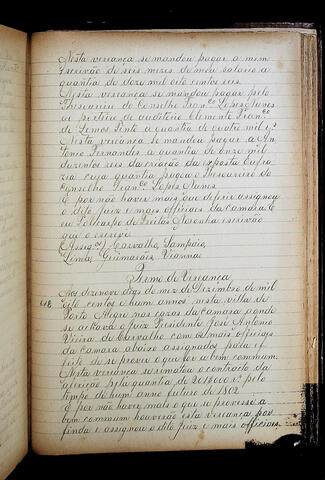 Nesta veriança se mandou pagar a mim
escrivão de seis mezes de meu salario a
quantia de doze mil oito centos reis.
Nesta veriança se mandou pagar pelo
Thesoureiro do Conselho Fran.co Lopes Nunes
ao porteiro do auditorio Clemente Fran.co
de Lemos Pinto a quantia de quatro mil r.s
Nesta veriança se mandou pagar a An-
tonio Fernandes a quantia de onze mil
duzentos reis da criação da exposta Eufra-
zia cuja quantia pagou o Thesoureiro do
Conselho Fran.co Lopes Nunes
E por não haver mais que deferir assignou
o dito Juiz e mais officiaes da camara. E
eu de Freitas Noronha escrivão
que o escrevi
Assig.os) Carvalho, Sampaio,
Lima, Guimarais, Vianna
Termo de Veriança
418 Aos dezenove dias do mez de Dezembro de mil
oito centos e hum annos nesta villa de
Porto Alegre nos cazas da camara aonde
se achava o Juiz Presidente José Antonio
Vieira de Carvalho com os mais officiaes
da camara abaixo assignados pela ef
feito de se prover o que for a bem commum.
Nesta veriança se rimatou o contracto da
afferição pela quantia de 201$000 r.s pelo
tempo de hum anno futuro de 1802
E por não haver mais o que se provesse a
bem commum houverão esta veriança por
finda e assignou o dito Juiz e mais officiaes.